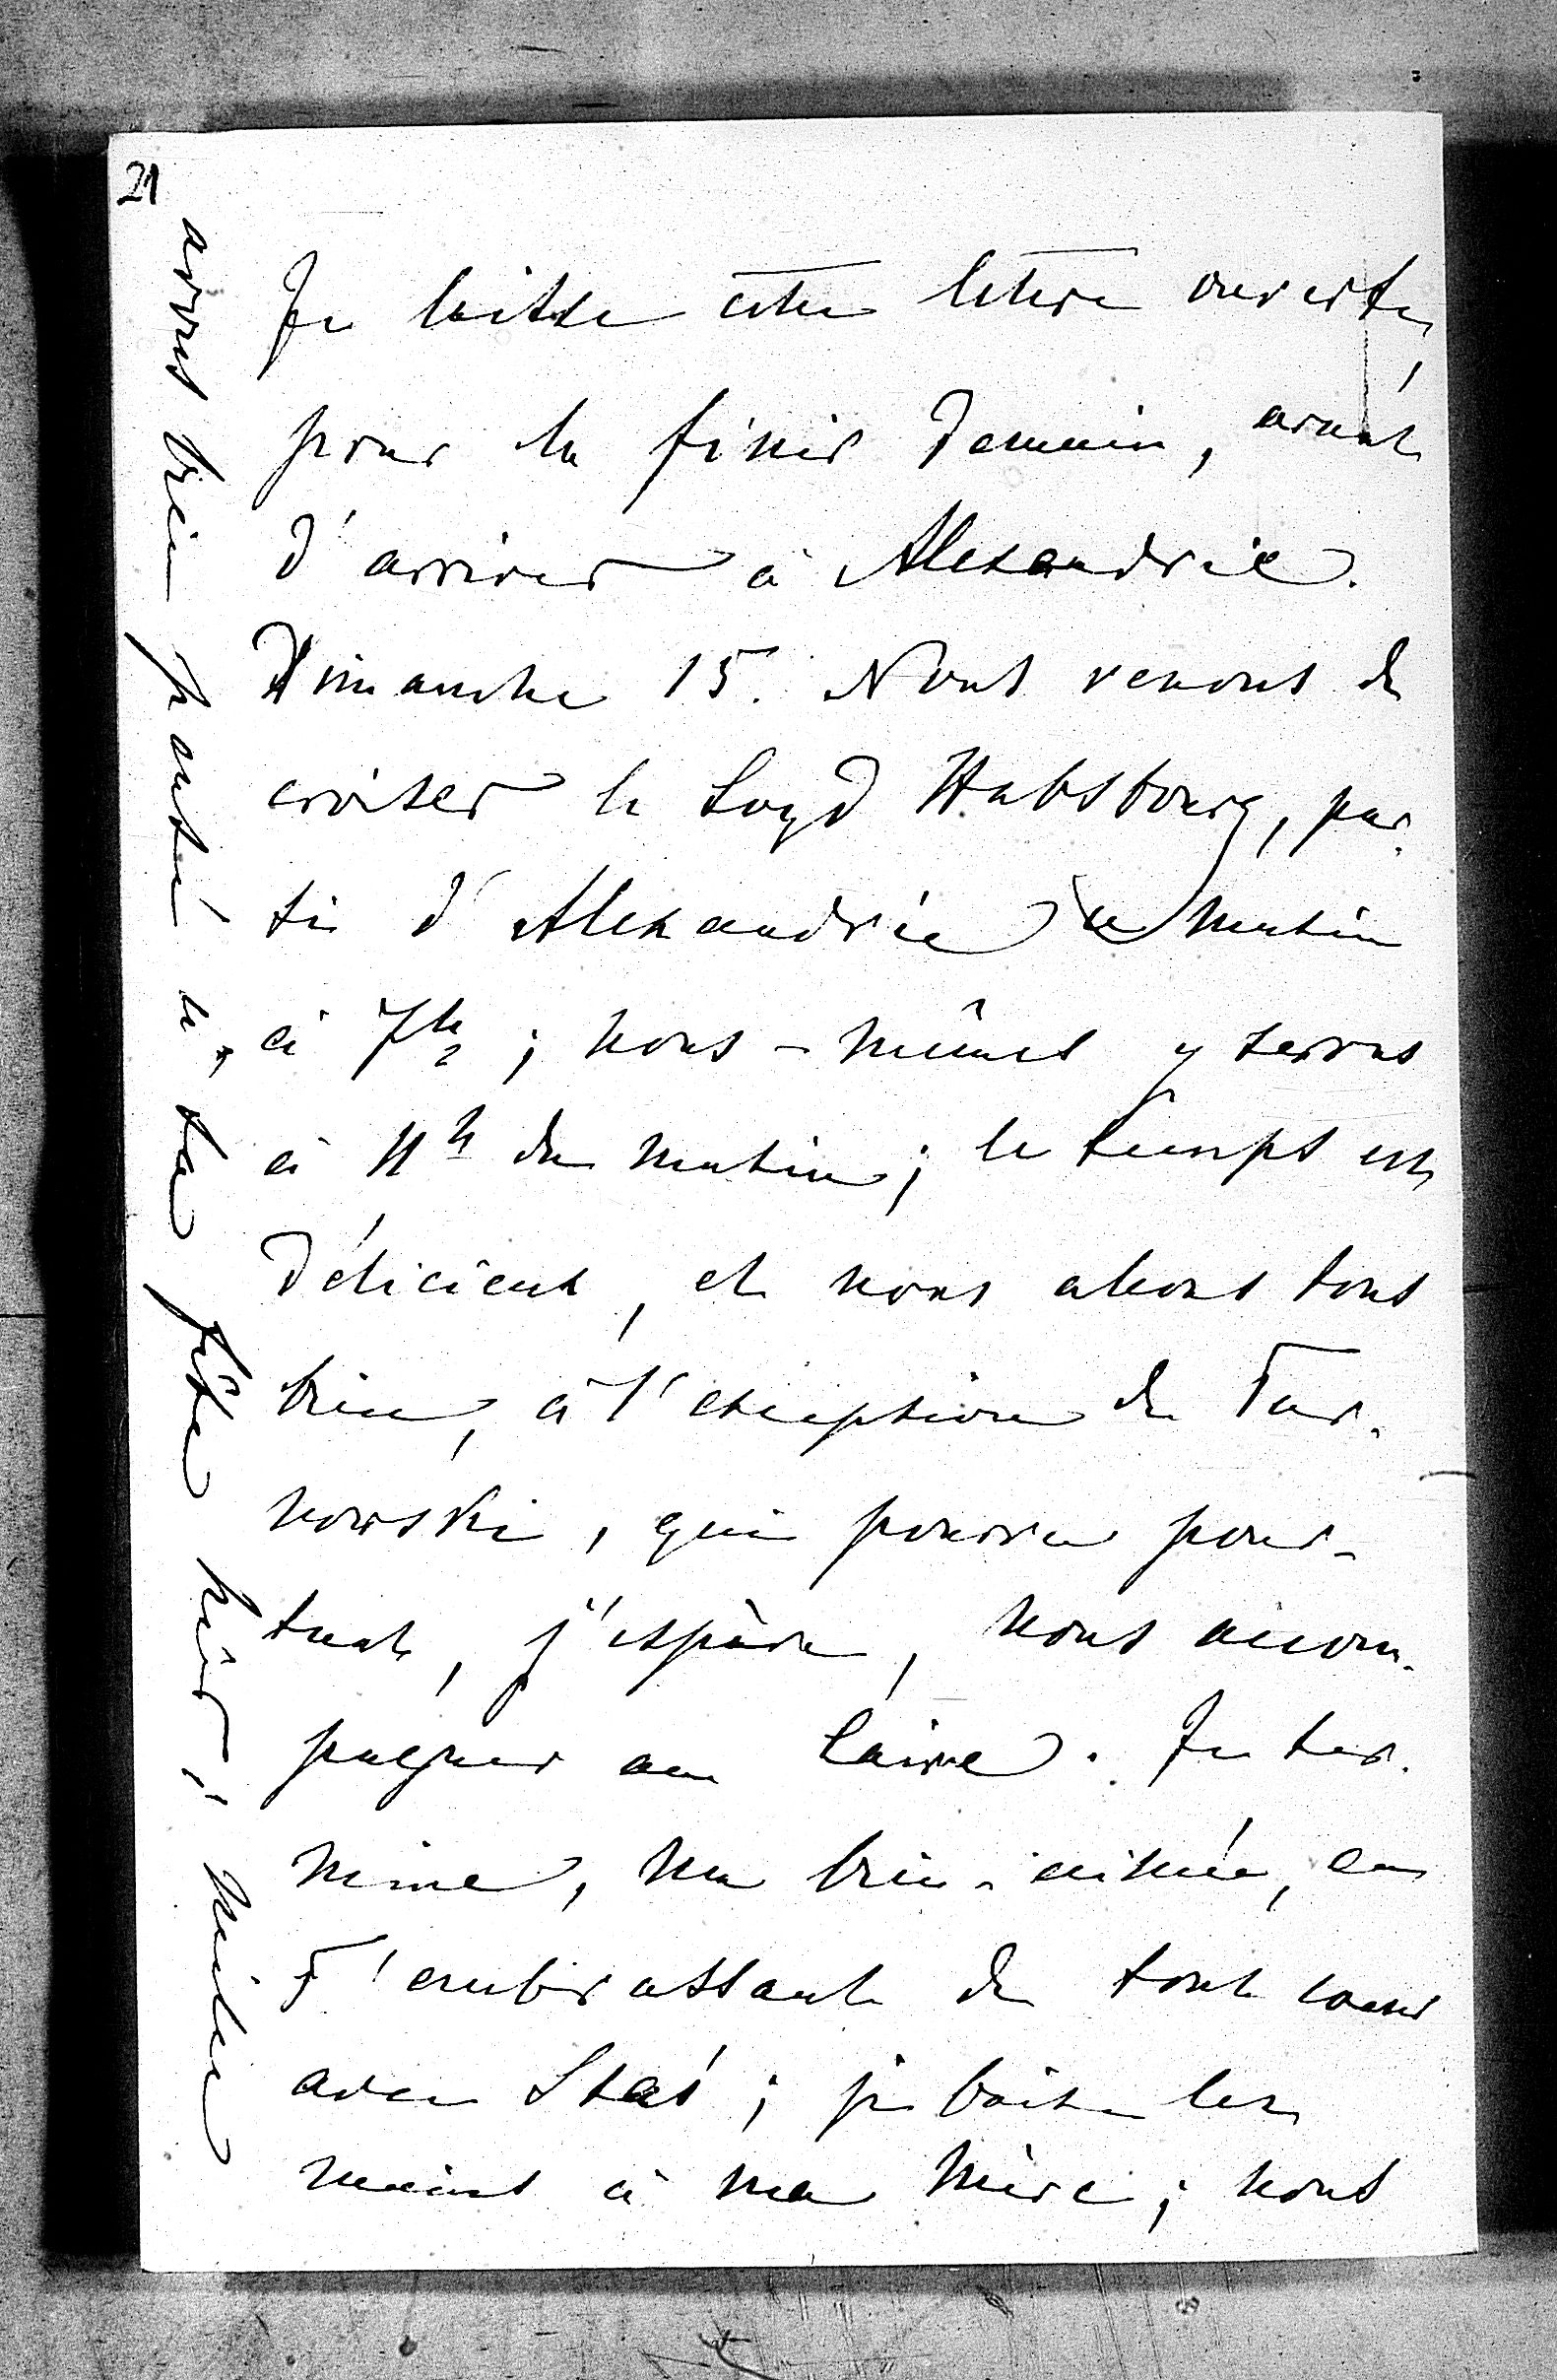 21
Je laisse cette lettre ouverte,
pour la finir demain, avant
d'arriver à Alexandrie.
Dimanche 15. Nous venons de
croiser le Loyd Habsbourg, par-
ti d'Alexandrie ce matin
à 7h ; nous-mêmes y serons
à 11h du matin; le temps est
délicieux, et nous allons tous
bien, à l'exception de Tar-
nowski, qui pourra pour-
tant, j'espère, nous accom-
pagner au Caire. Je ter-
mine, ma bien-aimée, en
t'embrassant de tout coeur
avec Staś; je baise les
mains à ma Mère; nous
avons bien pensé à ta fête hier,